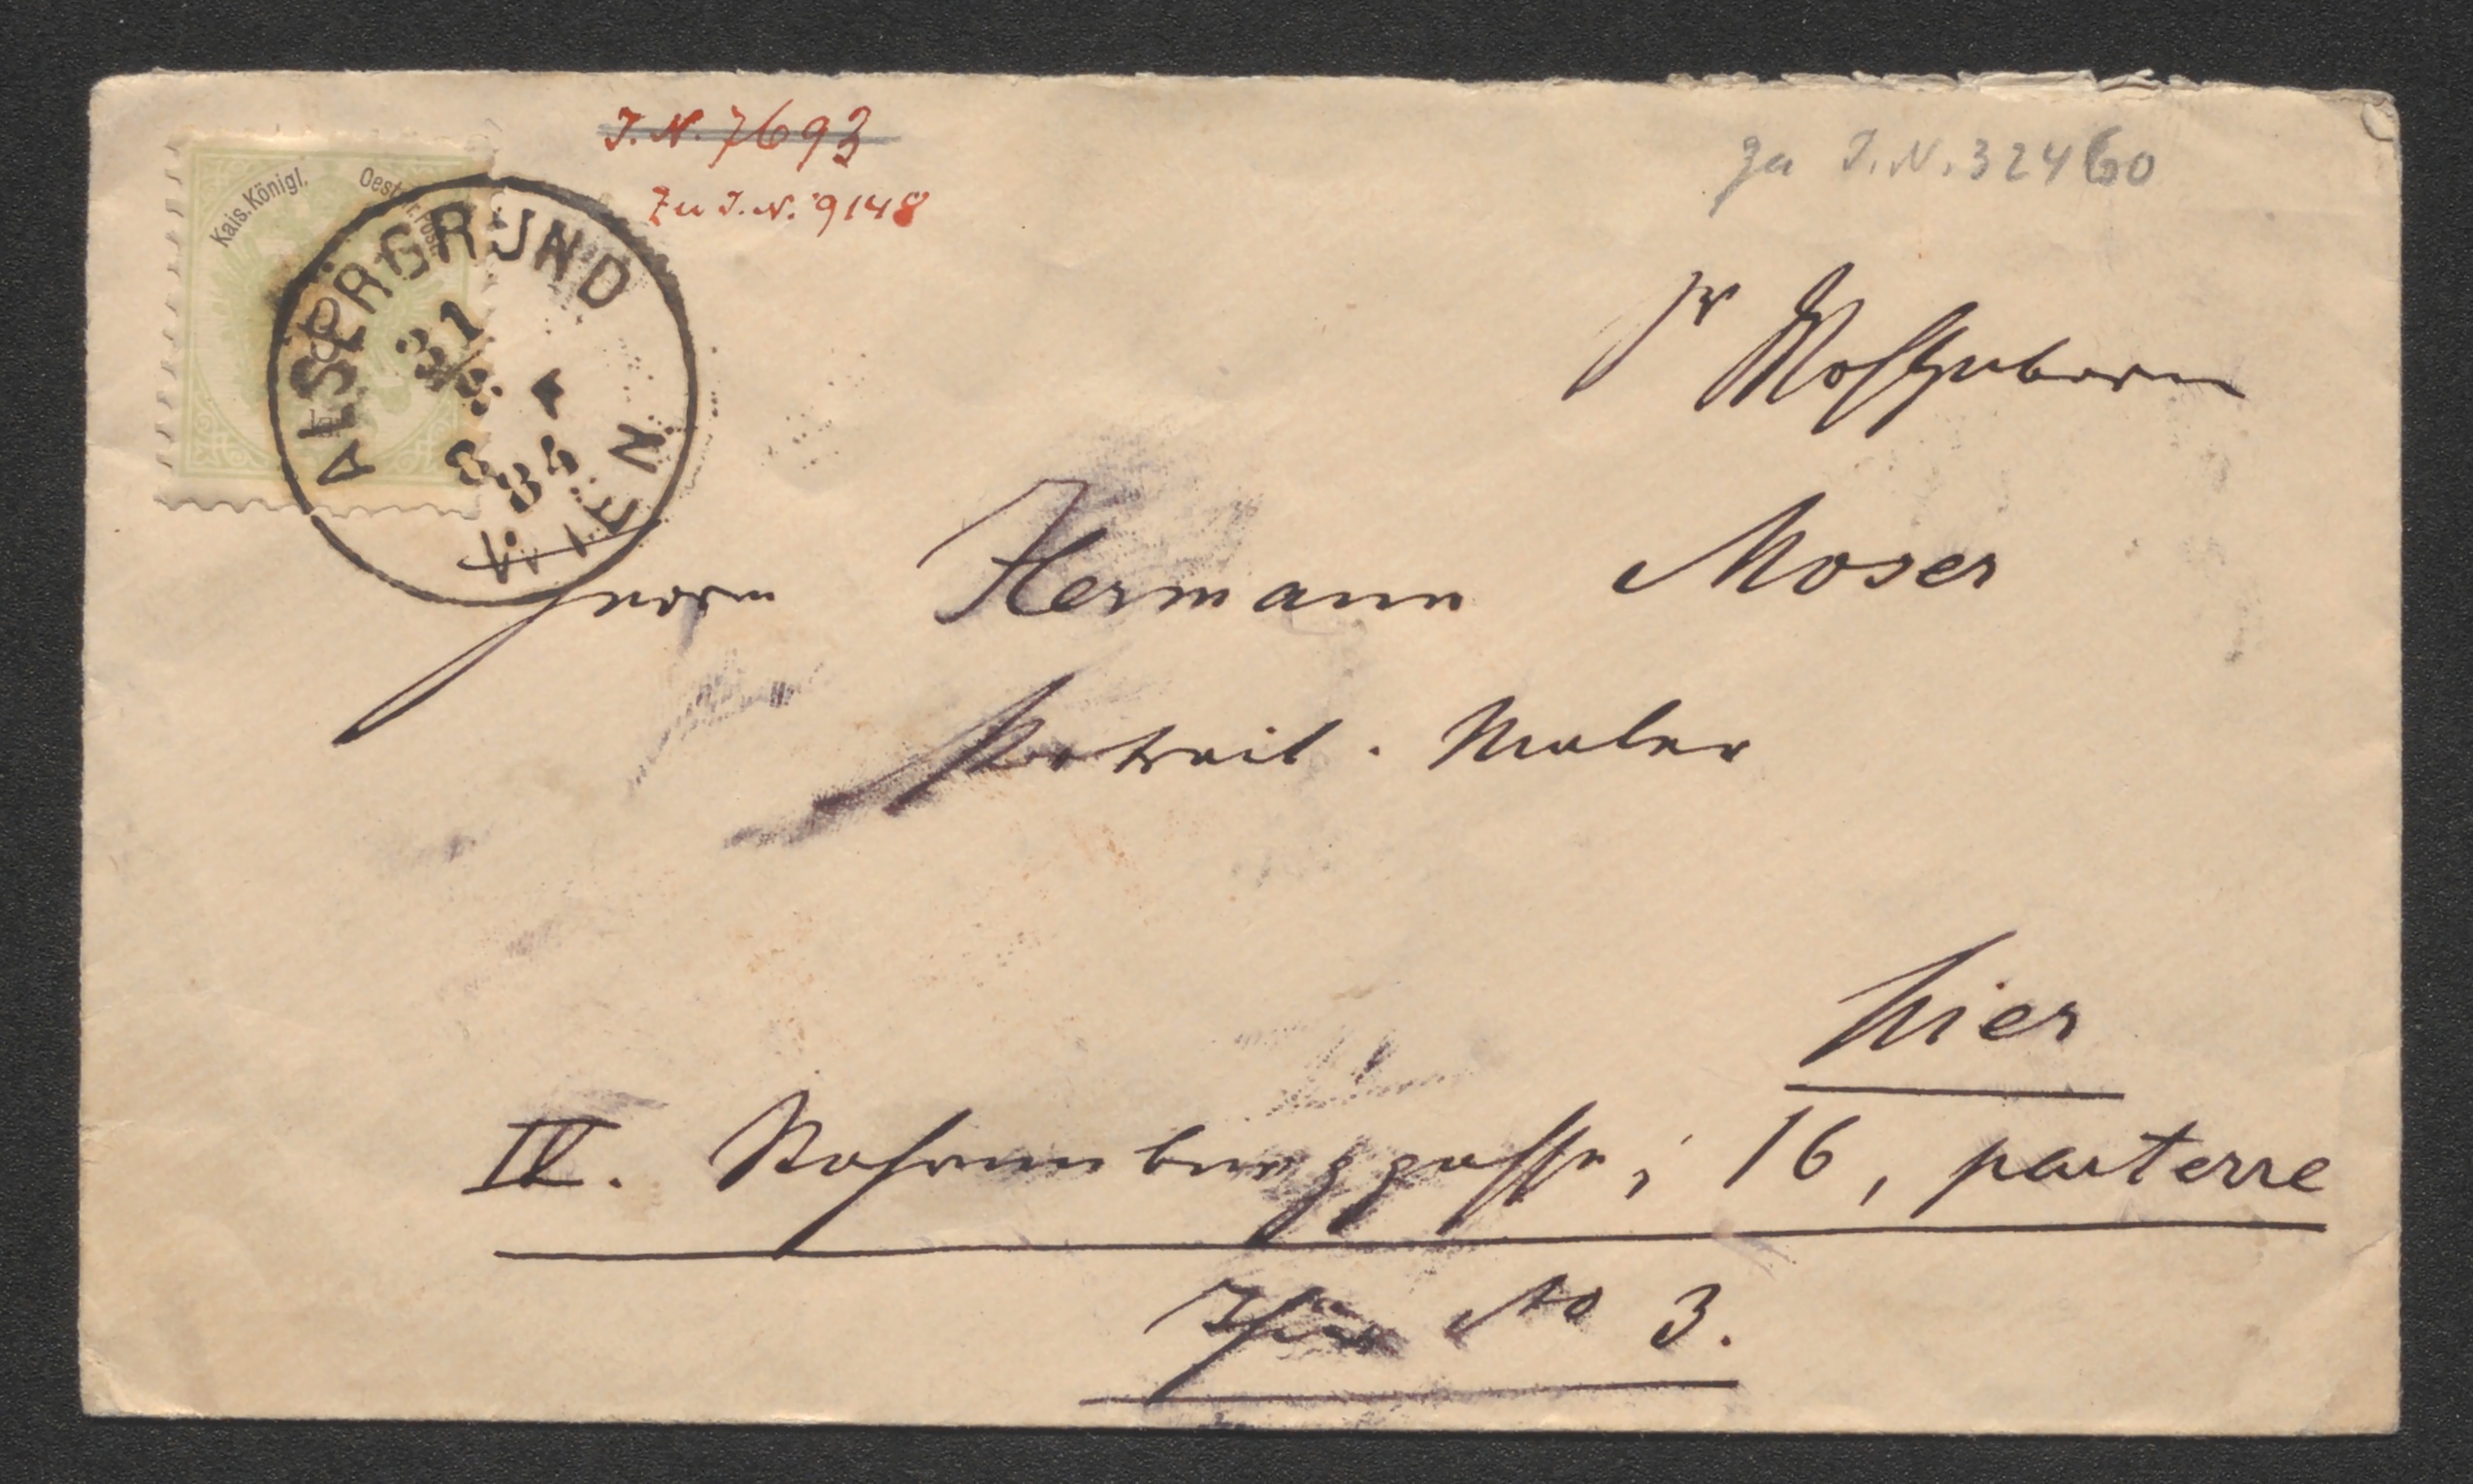 I.N. 7693
Zu I.N. 9148
zu I.N. 32460
Kais. Königl. Oesterr. Post
ALSERGRUND
31
8
84
WIEN
Sr Wohlgeboren
Herrn Hermann Moser
Portrait-Maler
hier
IV. Starhemberggasse, 16, parterre
Thür No 3.